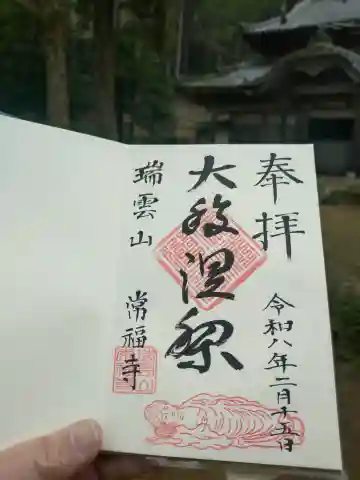 奉拝
令和八年二月十五日
大般涅槃
瑞雲山
常福寺